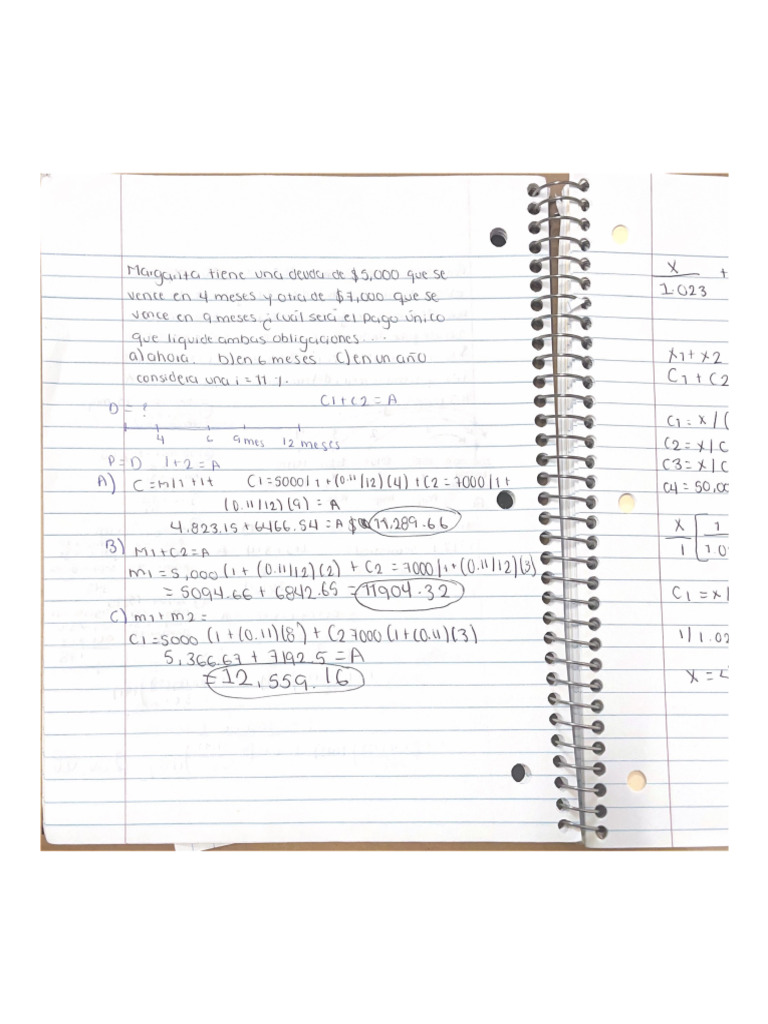 Margarita tiene una deuda de $5,000 que se
vence en 4 meses y otra de $7,000 que se
vence en 9 meses ¿cuál será el pago único
que liquide ambas obligaciones...
a) ahora. b) en 6 meses c) en un año
considera una i = 11 %.
C1 + C2 = A
D = ?
4 6 9 mes 12 meses
P = D 1+2 = A
A) C = m/1 + it C1 = 5000/1 + (0.11/12)(4) + C2 = 7000/1+
(0.11/12)(9) = A
4,823.15 + 6466.54 = A $ 11,289.66
B) M1 + C2 = A
m1 = 5,000 (1 + (0.11/12)(2) + C2 = 7000/1+(0.11/12)(3)
= 5094.66 + 6842.65 = 11904.32
C) m1 + m2 =
C1 = 5000 (1 + (0.11)(8) + C2 7000 (1 + (0.11)(3)
5,366.67 + 7192.5 = A
= 12,559.16
X +
1.023
X1 + X2
C1 + C2
C1 = X / (
C2 = X / C
C3 = X / C
C4 = 50,00
X [ 1
1 [ 1.0
C1 = X /
1 / 1.02
X =